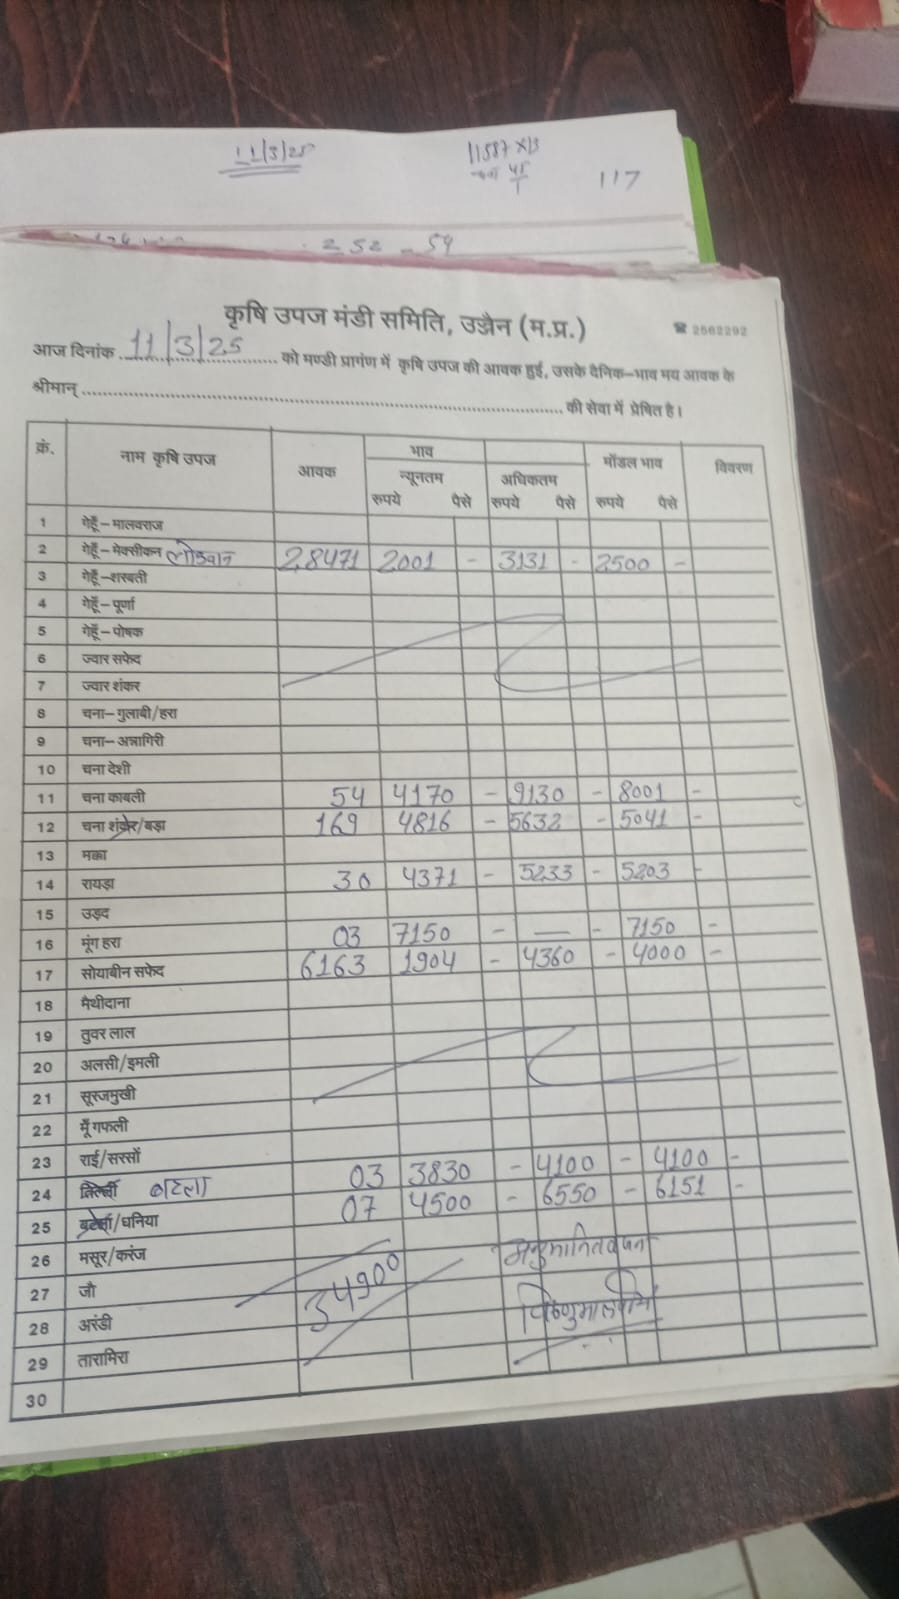 11/3/25
11587 x 13
117
252 - 59
कृषि उपज मंडी समिति, उज्जैन (म.प्र.) ☎ 2562292
आज दिनांक 11/3/25 को मण्डी प्रागंण में कृषि उपज की आवक हुई, उसके दैनिक-भाव मय आवक के
श्रीमान् की सेवा में प्रेषित है।
क्रं. नाम कृषि उपज आवक भाव मॉडल भाव विवरण
न्यूनतम अधिकतम
रुपये पैसे रुपये पैसे रुपये पैसे
1 गेहूँ-मालवराज
2 गेहूँ-मेक्सीकन लोकवान 28471 2001 - 3131 - 2500 -
3 गेहूँ-शरबती
4 गेहूँ-पूर्णा
5 गेहूँ-पोषक
6 ज्वार सफेद
7 ज्वार शंकर
8 चना-गुलाबी/हरा
9 चना-अन्नागिरी
10 चना देशी
11 चना काबली 54 4170 - 9130 - 8001 -
12 चना शंकर/बड़ा 169 4816 - 5632 - 5041 -
13 मक्का
14 रायड़ा 30 4371 - 5233 - 5203 -
15 उड़द
16 मूंग हरा 03 7150 - — - 7150 -
17 सोयाबीन सफेद 6163 1904 - 4360 - 4000 -
18 मैथीदाना
19 तुवर लाल
20 अलसी/इमली
21 सूरजमुखी
22 मूँगफली
23 राई/सरसों
24 तिल्ली बटला 03 3830 - 4100 - 4100 -
25 बटला/धनिया 07 4500 - 6550 - 6151 -
26 मसूर/करंज
27 जौ 34900
28 अरंडी
29 तारामिरा
30